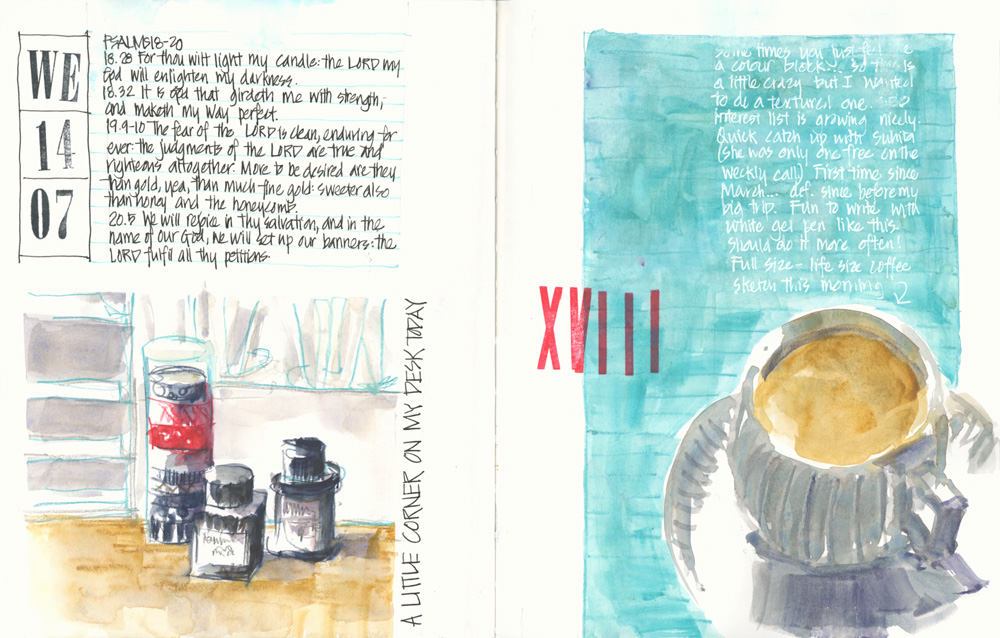 WE
14
07
PSALMS 18-20
18.28 For thou wilt light my candle: the LORD my
God will enlighten my darkness.
18.32 It is God that girdeth me with strength,
and maketh my way perfect.
19.9-10 The fear of the LORD is clean, enduring for
ever: the judgments of the LORD are true and
righteous altogether. More to be desired are they
than gold, yea, than much fine gold: sweeter also
than honey and the honeycomb.
20.5 We will rejoice in thy salvation, and in the
name of our God, we will set up our banners: the
LORD fulfil all thy petitions.
A LITTLE CORNER ON MY DESK TODAY
Some times you just feel
a colour block... so this is
a little crazy but I wanted
to do a textured one.
interest list is growing nicely.
Quick catch up with Suhita
(she was only one free on the
weekly call). First time since
March... def. since before my
big trip. Fun to write with
white gel pen like this.
Should do it more often!
Full size - life size coffee
sketch this morning
XVIII